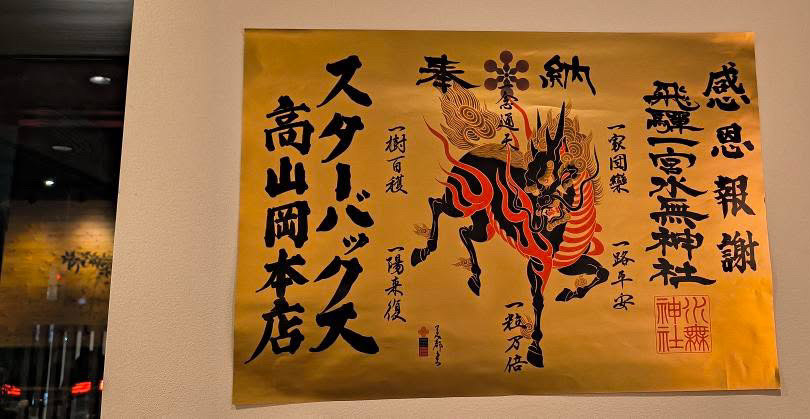 感恩報謝
飛騨一宮水無神社
水無神社
奉納
一念通天
一家団欒
一路平安
一粒万倍
一樹百穫
一陽来復
スターバックス
高山岡本店